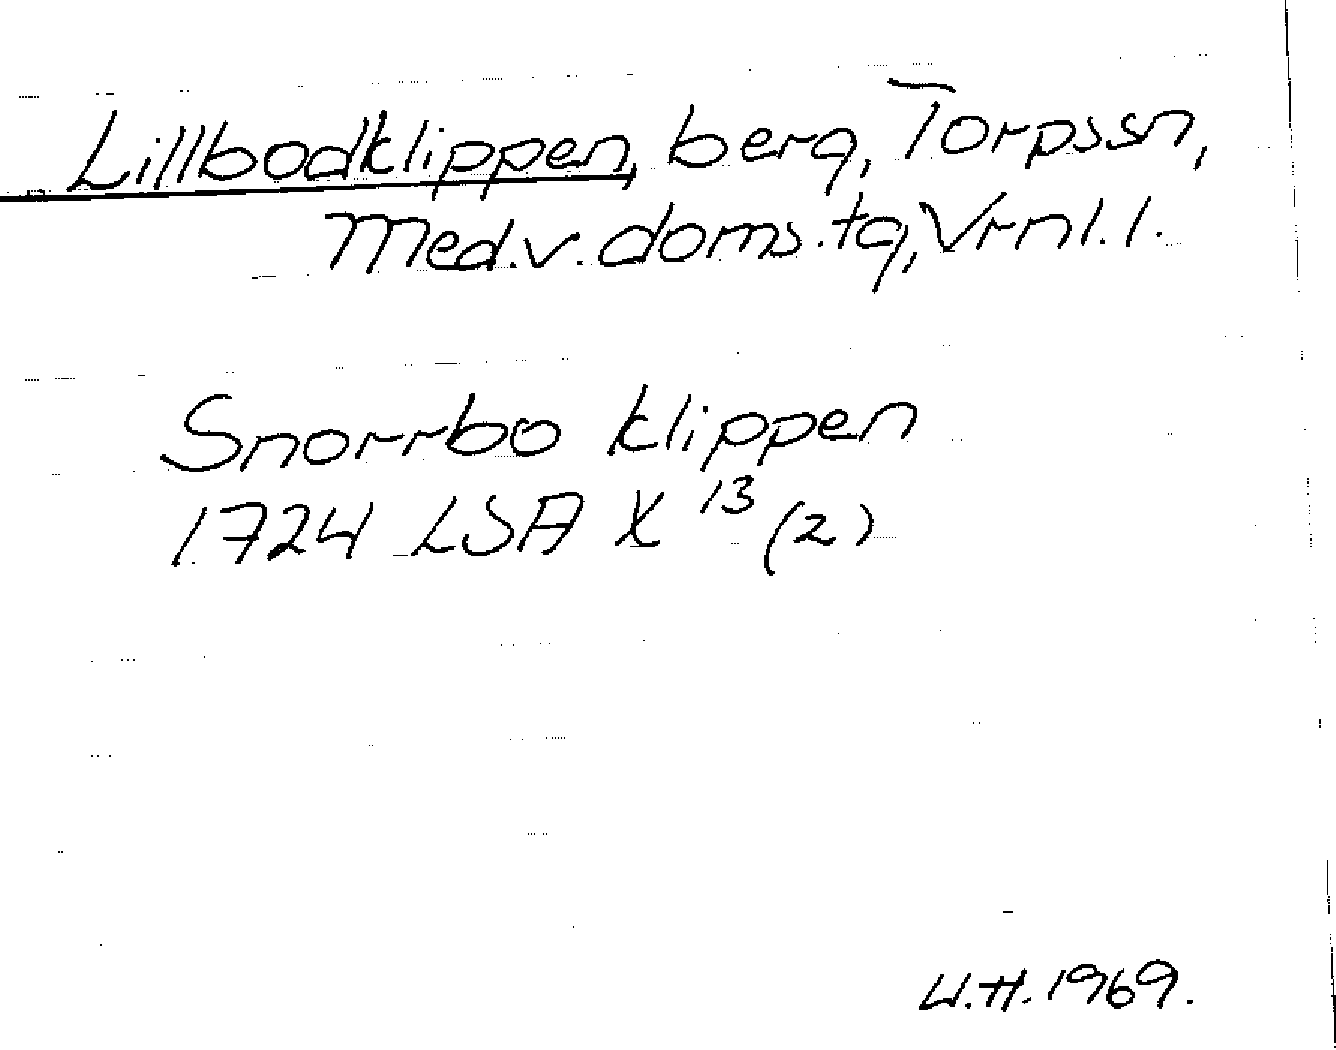 Lillbodklippen, berg, Torpssn,
Med.v.doms.tg, Vrml.l.
Snorrbo klippen
1724 LSA X 13 (2)
U.H. 1969.